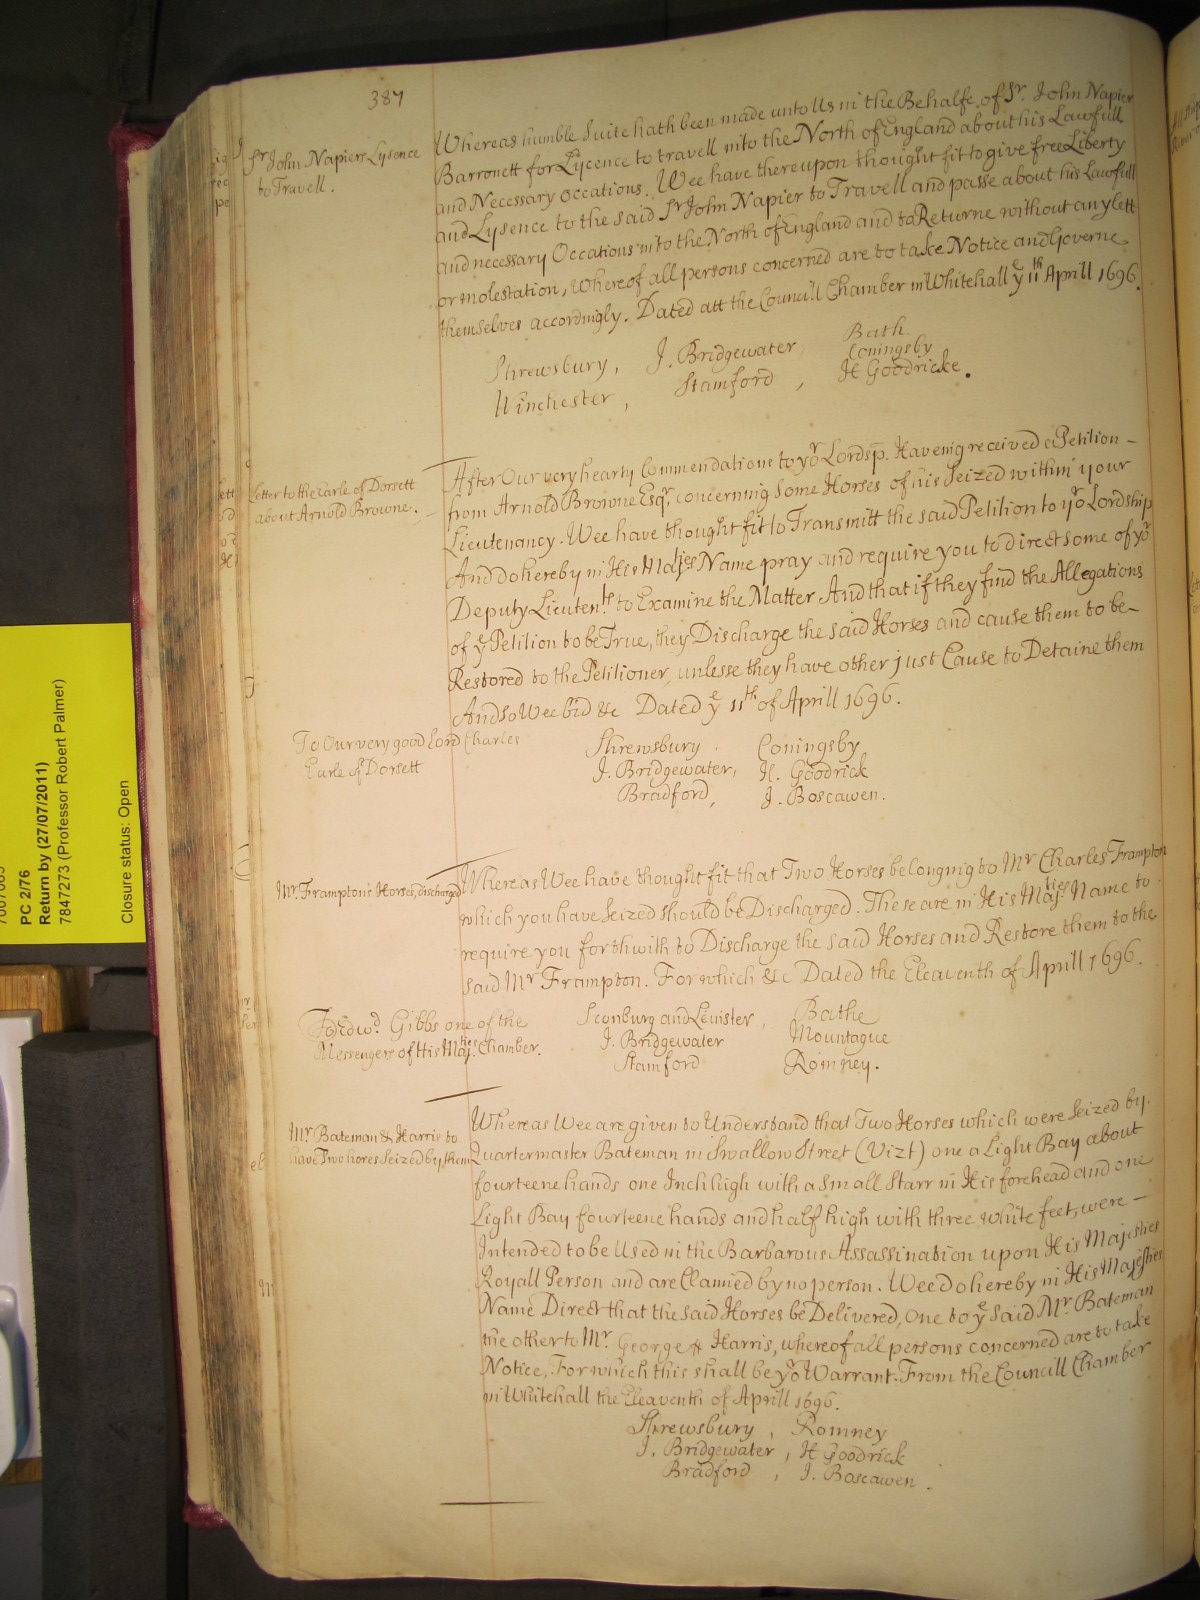 387
Sr John Napier Lysence
to Travell.
Whereas humble Suite hath been made unto Us in the Behalfe of Sr. John Napier
Barronett for Lycence to travell into the North of England about his Lawfull
and Necessary Occations. Wee have thereupon thought fit to give free Liberty
and Lysence to the said Sr John Napier to Travell and passe about his Lawfull
and necessary Occations into the North of England and to Returne without any lett
or molestation, Whereof all persons concerned are to take Notice and Governe
themselves accordingly. Dated att the Councill Chamber in Whitehall ye 11th Aprill 1696.
Shrewsbury, J. Bridgewater, Bath.
Coningsby
Winchester, Stamford, H Goodricke.
Letter to the Earle of Dorsett
about Arnold Browne.
After Our very hearty Commendations to yor Lordsp. Haveing received a Petition -
from Arnold Browne Esqr. concerning Some Horses of his Seized within your
Lieutenancy. Wee have thought fit to Transmitt the said Petition to yor Lordship
And do hereby in His Majties Name pray and require you to direct some of yor
Deputy Lieutents. to Examine the Matter And that if they find the Allegations
of ye Petition to be True, they Discharge the said Horses and cause them to be-
Restored to the Petitioner, unlesse they have other just Cause to Detaine them
And so Wee bid &c Dated ye 11th of Aprill 1696.
To Our very good Lord Charles
Earle of Dorsett
Shrewsbury. Coningsby
J. Bridgewater, H. Goodrick
Bradford, J. Boscawen.
Mr. Frampton's Horses, discharged
Whereas Wee have thought fit that Two Horses belonging to Mr Charles Frampton
which you have Seized should be Discharged. These are in His Majties. Name to
require you forthwith to Discharge the said Horses and Restore them to the
said Mr Frampton. For which &c Dated the Eleaventh of Aprill 1696.
To Edwd. Gibbs one of the
Messengers of His Majties. Chamber.
Sconburg and Leinster, Bathe
J. Bridgewater Mountague
Stamford Romney.
Mr. Bateman & Harris to
have Two hores Seized by them
Whereas Wee are given to Understand that Two Horses which were Seized by
Quartermaster Bateman in Swallow Street (Vizt) one a Light Bay about
fourteene hands one Inch high with a Small Starr in His forehead and one
Light Bay fourteene hands and half high with three white feet, were -
Intended to be Used in the Barbarous Assassination upon His Majesties
Royall Person and are Claimed by no person. Wee do hereby in His Majesties
Name Direct that the said Horses be Delivered, One to ye Said Mr. Bateman
the other to Mr. George Harris, whereof all persons concerned are to take
Notice, For which this shall be yor Warrant. From the Councill Chamber
in Whitehall the Eleaventh of Aprill 1696.
Shrewsbury, Romney
J. Bridgewater, H Goodrick
Bradford, J. Boscawen.
PC 2/76
Return by (27/07/2011)
7847273 (Professor Robert Palmer)
Closure status: Open